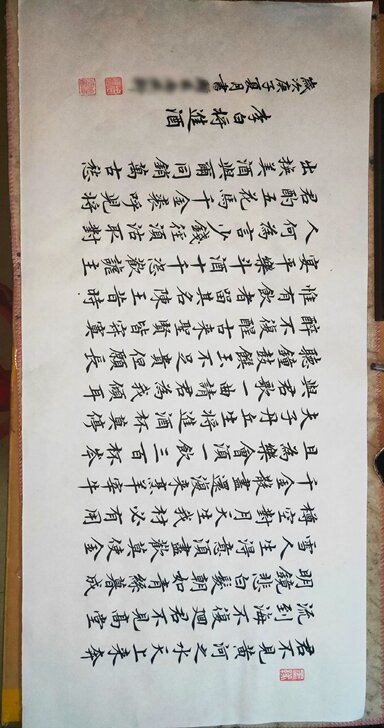 君不見黃河之水天上來奔
流到海不復迴君不見高堂
明鏡悲白髮朝如青絲暮成
雪人生得意須盡歡莫使金
樽空對月天生我材必有用
千金散盡還復來烹羊宰牛
且為樂會須一飲三百杯岑
夫子丹丘生將進酒杯莫停
與君歌一曲請君為我傾耳
聽鐘鼓饌玉不足貴但願長
醉不復醒古來聖賢皆寂寞
惟有飲者留其名陳王昔時
宴平樂斗酒十千恣歡謔主
人何為言少錢徑須沽取對
君酌五花馬千金裘呼兒將
出換美酒與爾同銷萬古愁
李白將進酒
歲次庚子夏月書